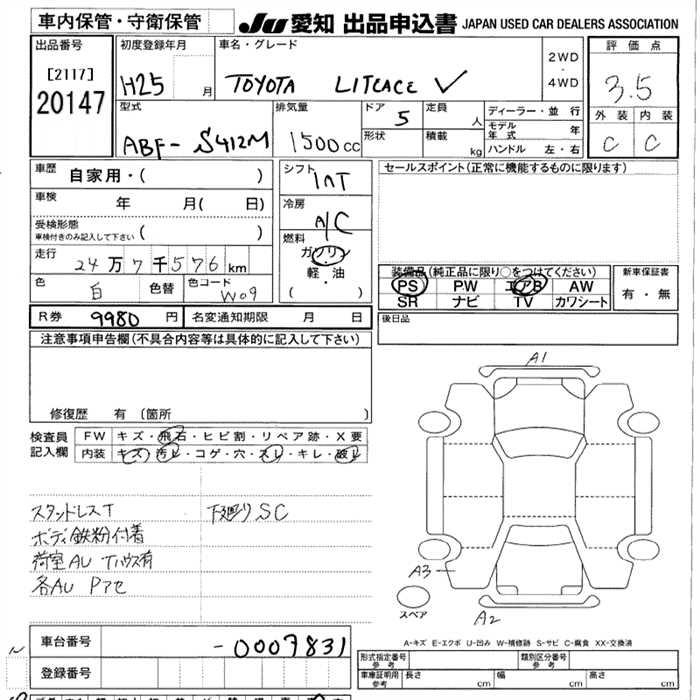 車内保管・守衛保管
JU 愛知 出品申込書 JAPAN USED CAR DEALERS ASSOCIATION
出品番号
[2117]
20147
初度登録年月
H25 月
車名・グレード
TOYOTA LITEACE V
2WD
・
4WD
評価点
3.5
外装 内装
C C
型式
ABF- S412M
排気量
1500cc
ドア 5
形状
定員 人
積載 kg
ディーラー・並行
モデル年式 年
ハンドル 左・右
車歴
自家用・( )
車検 年 月( 日)
受検形態
車検付きのみ記入して下さい ( )
走行
24万7千576km
色 白 色替 色コード W09
シフト
INT
冷房
A/C
燃料
ガソリン
・
軽油
( )
セールスポイント(正常に機能するものに限ります)
装備品(純正品に限り○をつけてください)
PS PW エアB AW
SR ナビ TV カワシート
新車保証書
有・無
R券 9980円 名変通知期限 月 日
後日品
注意事項申告欄(不具合内容等は具体的に記入して下さい)
修復歴 有(箇所 )
検査員
記入欄
FW キズ・飛石・ヒビ割・リペア跡・X要
内装 キズ・汚レ・コゲ・穴・スレ・キレ・破レ
スタッドレスT
下廻りSC
ボデー鉄粉付着
荷室AU Tハウス有
各AU Pアセ
A1
A3
A2
スペア
A-キズ E-エクボ U-凹み W-補修跡 S-サビ C-腐食 XX-交換済
車台番号
-0007831
登録番号
形式指定番号
参考
類別区分番号
参考
車庫証明用
参考
長さ cm 幅 cm 高さ cm